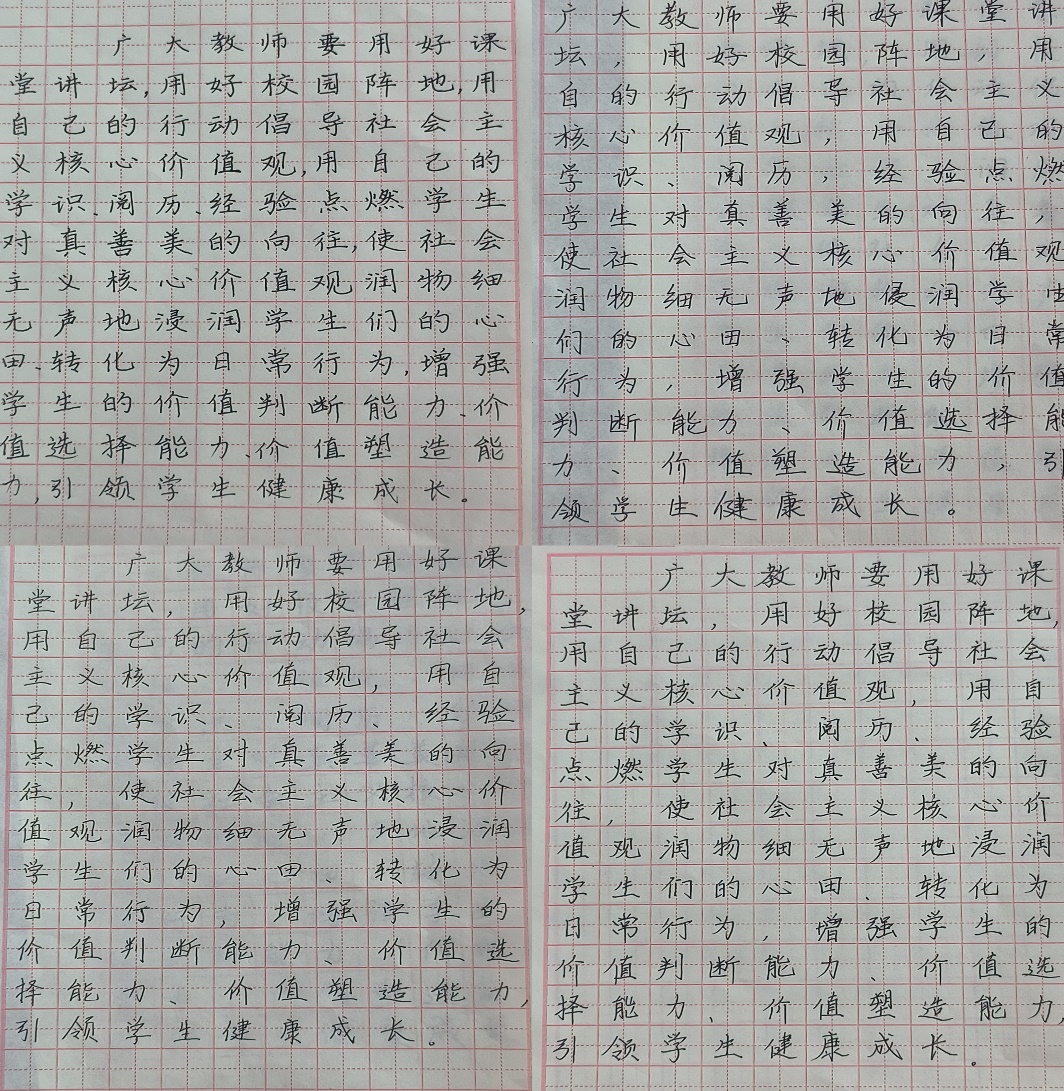 广大教师要用好课
堂讲坛,用好校园阵地,用
自己的行动倡导社会主
义核心价值观,用自己的
学识、阅历、经验点燃学生
对真善美的向往,使社会
主义核心价值观润物细
无声地浸润学生们的心
田、转化为日常行为,增强
学生的价值判断能力、价
值选择能力、价值塑造能
力,引领学生健康成长。
广大教师要用好课堂讲
坛,用好校园阵地,用
自的行动倡导社会主义
核心价值观,用自己的
学识、阅历,经验点燃
学生对真善美的向往,
使社会主义核心价值观
润物细无声地侵润学生
们的心田、转化为日常
行为,增强学生的价值
判断能力、价值选择能
力、价值塑造能力,引
领学生健康成长。
广大教师要用好课
堂讲坛,用好校园阵地,
用自己的行动倡导社会
主义核心价值观,用自
己的学识、阅历、经验
点燃学生对真善美的向
往,使社会主义核心价
值观润物细无声地浸润
学生们的心田、转化为
日常行为,增强学生的
价值判断能力、价值选
择能力、价值塑造能力,
引领学生健康成长。
广大教师要用好课
堂讲坛,用好校园阵地,
用自己的行动倡导社会
主义核心价值观,用自
己的学识、阅历、经验
点燃学生对真善美的向
往,使社会主义核心价
值观润物细无声地浸润
学生们的心田、转化为
日常行为,增强学生的
价值判断能力、价值选
择能力、价值塑造能力,
引领学生健康成长。